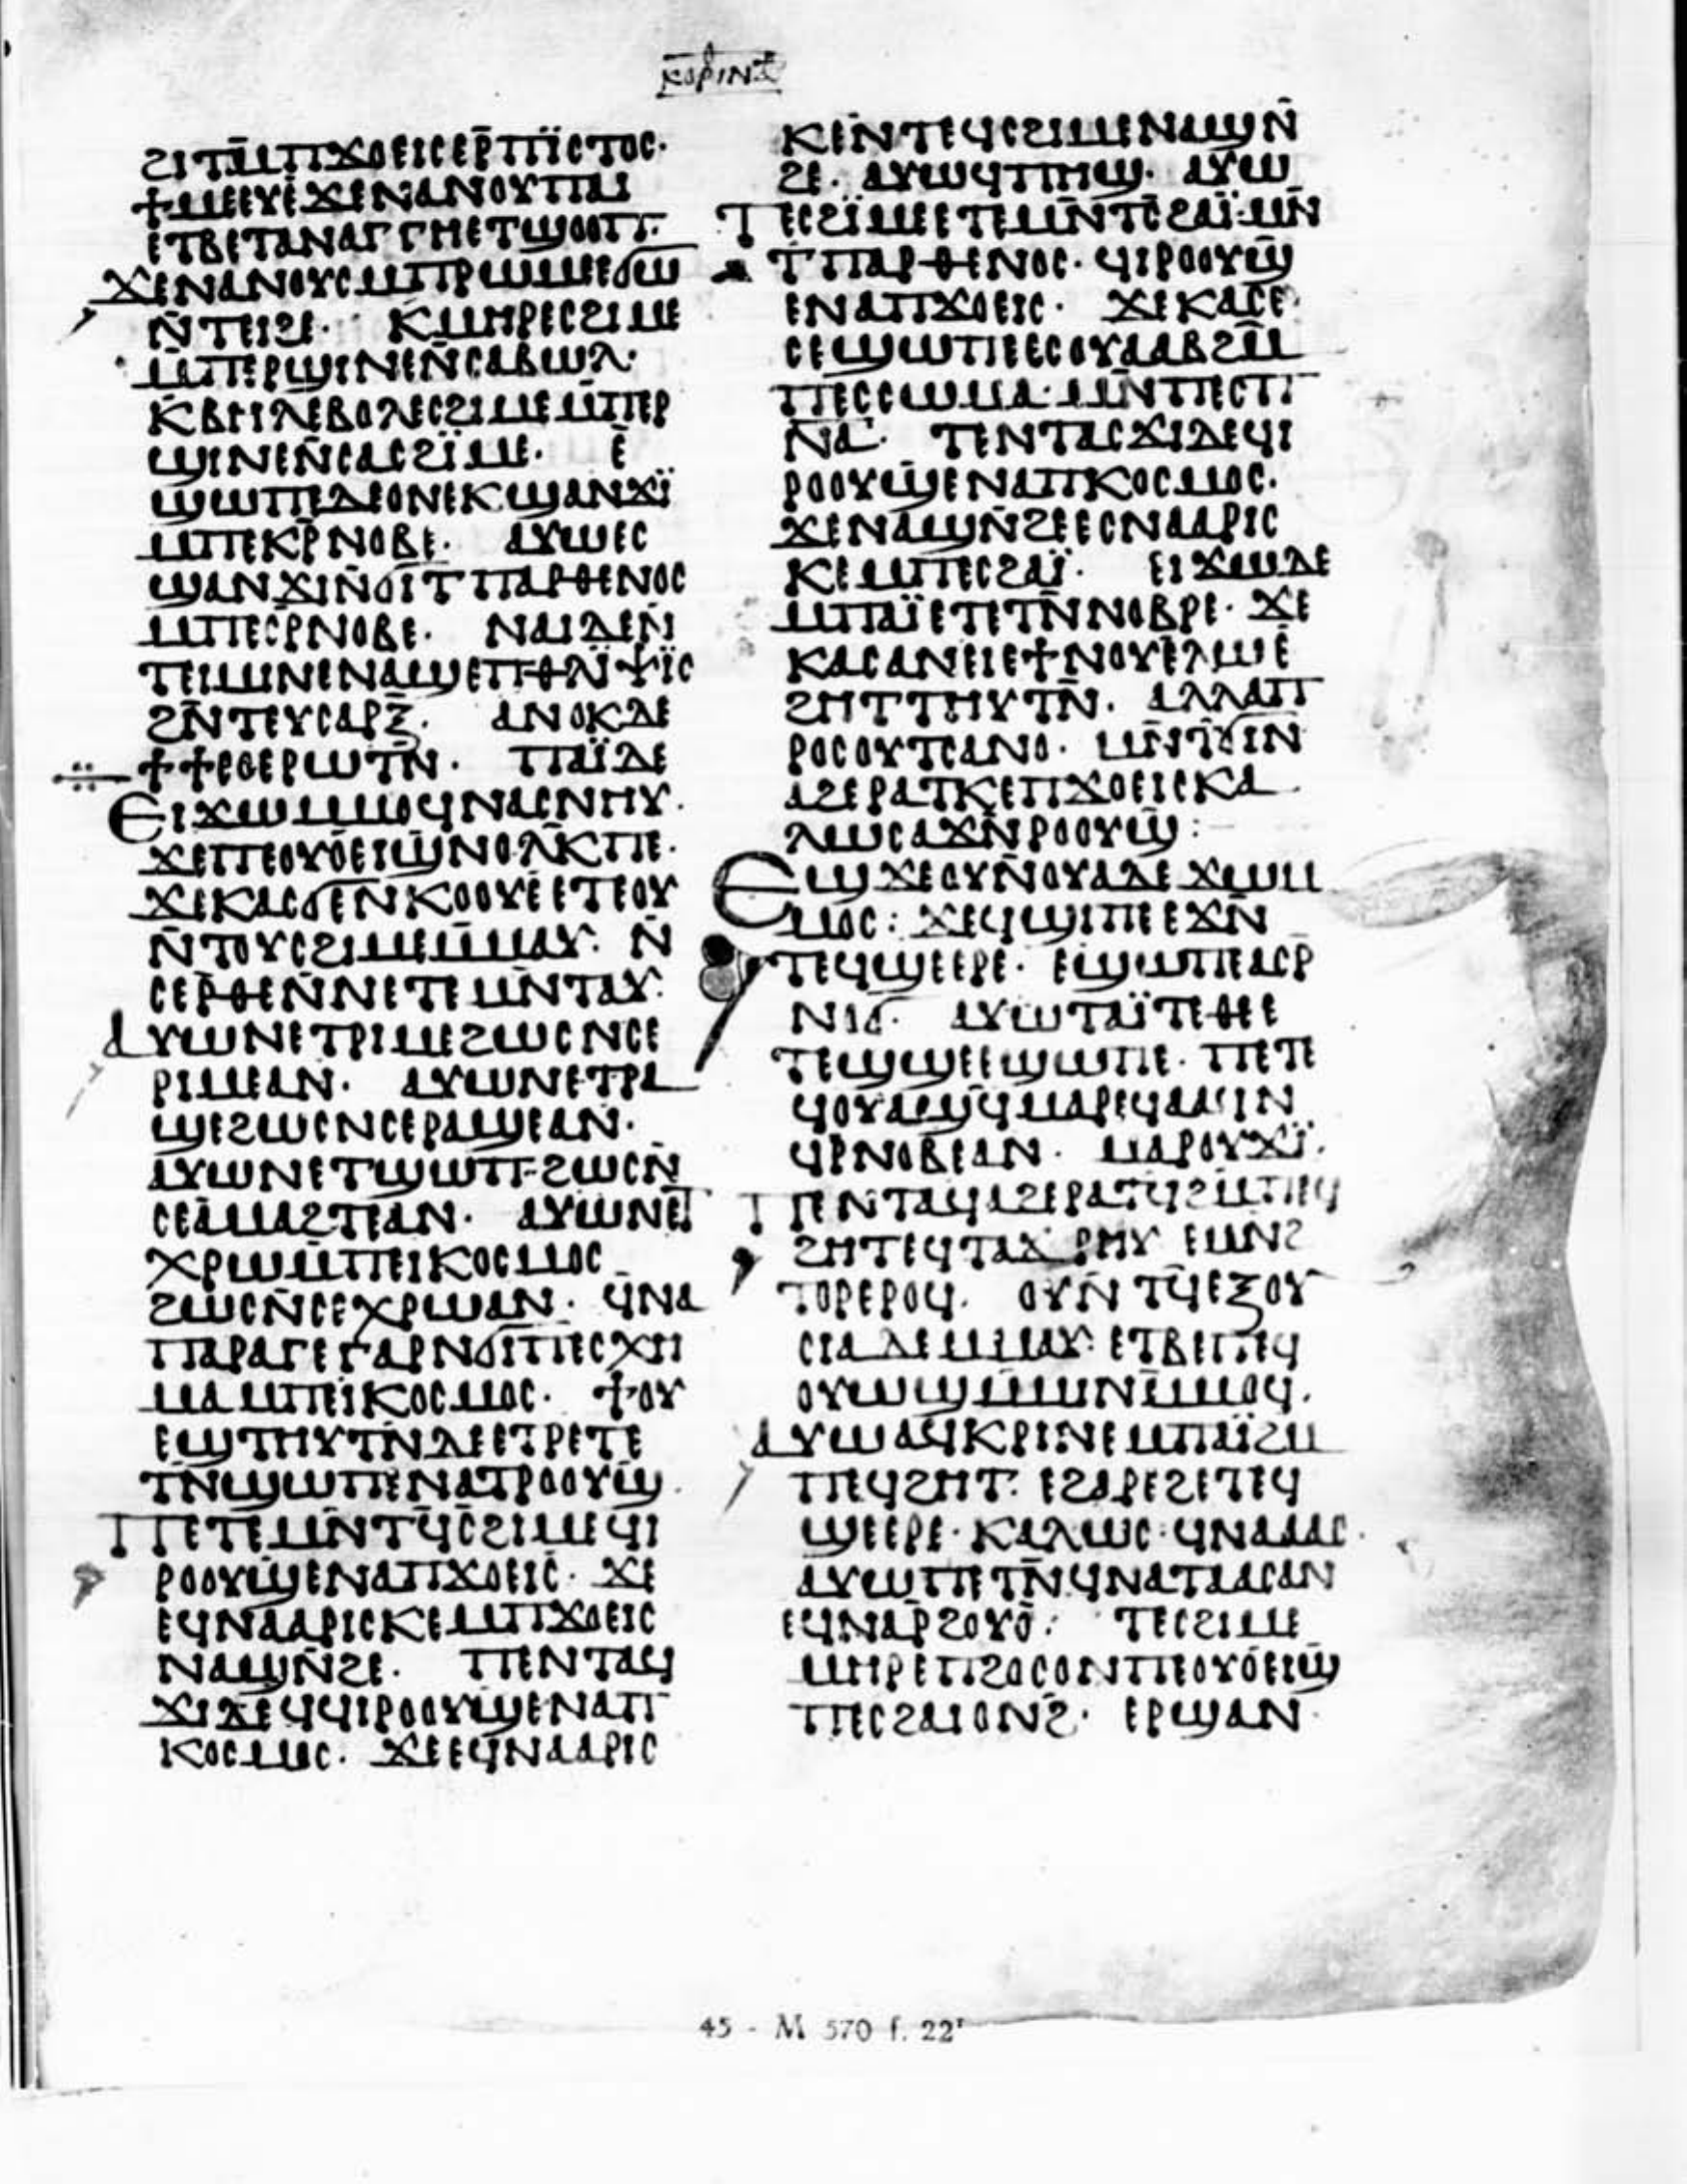 ⲕⲟⲣⲓⲛⲑ
ϩⲓⲧⲙ̄ⲡϫⲟⲉⲓⲥⲉⲣ̄ⲡⲓ̈ⲥⲧⲟⲥ·
ϯⲙⲉⲉⲩⲉϫⲉⲛⲁⲛⲟⲩⲡⲁⲓ
ⲉⲧⲃⲉⲧⲁⲛⲁⲅⲅⲏⲉⲧϣⲟⲟⲡ·
ϫⲉⲛⲁⲛⲟⲩⲥⲙ̄ⲡⲣⲱⲙⲉϭⲱ
ⲛ̄ⲧⲉⲓϩⲉ· ⲕⲙⲏⲣⲉⲥϩⲓⲙⲉ
ⲙ̄ⲡⲉⲣϣⲓⲛⲉⲛ̄ⲥⲁⲃⲱⲗ·
ⲕⲃⲏⲗⲉⲃⲟⲗⲉⲥϩⲓⲙⲉⲙ̄ⲡⲉⲣ
ϣⲓⲛⲉⲛ̄ⲥⲁⲥϩⲓ̈ⲙⲉ· ⲉ̄
ϣⲱⲡⲉⲇⲉⲟⲛⲉⲕϣⲁⲛϫⲓ̈
ⲙ̄ⲡⲉⲕⲣ̄ⲛⲟⲃⲉ· ⲁⲩⲱⲉⲥ
ϣⲁⲛϫⲓⲛ̄ϭⲓⲧⲡⲁⲣⲑⲉⲛⲟⲥ
ⲙ̄ⲡⲉⲥⲣ̄ⲛⲟⲃⲉ· ⲛⲁⲓⲇⲉⲛ̄
ⲧⲉⲓⲙⲓⲛⲉⲛⲁϣⲉⲡⲑⲗⲓ̈ⲯⲓ̈ⲥ
ϩⲛ̄ⲧⲉⲩⲥⲁⲣⲝ̄· ⲁⲛⲟⲕⲇⲉ
ϯϯⲥⲟⲉⲣⲱⲧⲛ̄· ⲡⲁⲓ̈ⲇⲉ
ⲉⲓϫⲱⲙ̄ⲙⲟϥⲛⲁⲥⲛⲏⲩ·
ϫⲉⲡⲉⲟⲩⲟ̄ⲉⲓϣ̄ⲛⲟⲗ̄ⲕⲡⲉ·
ϫⲉⲕⲁⲥϭⲉⲛⲕⲟⲟⲩⲉⲉⲧⲉⲟⲩ
ⲛ̄ⲧⲟⲩⲥϩⲓⲙⲉⲙ̄ⲙⲁⲩ· ⲛ̄
ⲥⲉⲣ̄ⲑⲉⲛ̄ⲛⲉⲧⲉⲙⲛ̄ⲧⲁⲩ·
ⲁⲩⲱⲛⲉⲧⲣⲓⲙⲉϩⲱⲥⲛⲥⲉ
ⲣⲓⲙⲉⲁⲛ· ⲁⲩⲱⲛⲉⲧⲣⲁ
ϣⲉϩⲱⲥⲛⲥⲉⲣⲁϣⲉⲁⲛ·
ⲁⲩⲱⲛⲉⲧϣⲱⲡ·ϩⲱⲥⲛ̄
ⲥⲉⲁ̄ⲙⲁϩⲧⲉⲁⲛ· ⲁⲩⲱⲛⲉⲧ
ⲭⲣⲱⲙ̄ⲡⲉⲓⲕⲟⲥⲙⲟⲥ
ϩⲱⲥⲛ̄ⲥⲉⲭⲣⲱⲁⲛ· ϥⲛⲁ
ⲡⲁⲣⲁⲅⲉⲅⲁⲣⲛ̄ϭⲓⲡⲉⲥⲭⲏ
ⲙⲁⲙ̄ⲡⲉⲓⲕⲟⲥⲙⲟⲥ· ϯⲟⲩ
ⲉϣⲧⲏⲩⲧⲛ̄ⲇⲉⲉⲧⲣⲉⲧⲉ
ⲧⲛ̄ϣⲱⲡⲉⲛⲁⲧⲣⲟⲟⲩϣ̄·
ⲡⲉⲧⲉⲙⲛ̄ⲧϥ̄ⲥ̄ϩⲓⲙⲉϥⲓ
ⲣⲟⲟⲩϣ̄ⲉⲛⲁⲡϫⲟⲉⲓⲥ· ϫⲉ
ⲉϥⲛⲁⲁⲣⲓⲥⲕⲉⲙ̄ⲡϫⲟⲉⲓⲥ
ⲛⲁϣⲛ̄ϩⲉ· ⲡⲉⲛⲧⲁϥ
ϫⲓⲇⲉϥϥⲓⲣⲟⲟⲩϣ̄ⲉⲛⲁⲡ
ⲕⲟⲥⲙⲟⲥ· ϫⲉⲉϥⲛⲁⲁⲣⲓⲥ
ⲕⲉⲛ̄ⲧⲉϥⲥϩⲓⲙⲉⲛⲁϣⲛ̄
ϩⲉ· ⲁⲩⲱϥⲡⲏϣ· ⲁⲩⲱ
ⲧⲉⲥϩⲓ̈ⲙⲉⲉⲧⲉⲙⲛ̄ⲧⲥ̄ϩⲁⲓ̈·ⲙⲛ̄
ⲧⲡⲁⲣⲑⲉⲛⲟⲥ· ϥⲓⲣⲟⲟⲩϣ̄
ⲉⲛⲁⲡϫⲟⲉⲓⲥ· ϫⲉⲕⲁⲥⲉ
ⲥⲉϣⲱⲡⲉⲉⲥⲟⲩⲁⲁⲃϩⲙ̄
ⲡⲉⲥⲥⲱⲙⲁ·ⲙⲛ̄ⲡⲉⲥⲡ̄
ⲛ̄ⲁ̄· ⲧⲉⲛⲧⲁⲥϫⲓⲇⲉϥⲓ
ⲣⲟⲟⲩϣ̄ⲉⲛⲁⲡⲕⲟⲥⲙⲟⲥ·
ϫⲉⲛⲁϣⲛ̄ϩⲉⲉⲥⲛⲁⲁⲣⲓⲥ
ⲕⲉⲙ̄ⲡⲉⲥϩⲁⲓ̈· ⲉⲓϫⲱⲇⲉ
ⲙ̄ⲡⲁⲓ̈ⲉⲧⲉⲧⲛ̄ⲛⲟⲃⲣⲉ· ϫⲉ
ⲕⲁⲥⲁⲛⲉⲓⲉϯⲛⲟⲩⲉ̄ⲗϣⲉ̄
ϩⲏⲧⲧⲏⲩⲧⲛ̄· ⲁⲗⲗⲁⲡ
ⲣⲟⲥⲟⲩⲧⲥⲁⲛⲟ· ⲙⲛ̄ⲧ̄ϭⲓⲛ
ⲁϩⲉⲣⲁⲧⲕⲉⲡϫⲟⲉⲓⲥⲕⲁ
ⲗⲱⲥⲁϫⲛ̄ⲣⲟⲟⲩϣ̄:
ⲉϣϫⲉⲟⲩⲛ̄ⲟⲩⲁⲇⲉϫⲱⲙ
ⲙⲟⲥ: ϫⲉϥϣⲓⲡⲉⲉϫⲛ̄
ⲧⲉϥϣⲉⲉⲣⲉ· ⲉϣⲱⲡⲉⲁⲥⲣ
ⲛⲟϭ· ⲁⲩⲱⲧⲁⲓ̈ⲧⲉⲑⲉⲉ
ⲧⲉϣϣⲉⲉϣⲱⲡⲉ· ⲡⲉⲧⲉ
ϥⲟⲩⲁϣϥ̄ⲙⲁⲣⲉϥⲁⲁϥⲛ
ϥⲣⲛⲟⲃⲉⲁⲛ· ⲙⲁⲣⲟⲩϫⲓ̈·
ⲡⲉⲛⲧⲁϥⲁϩⲉⲣⲁⲧϥϩⲙ̄ⲡⲉϥ
ϩⲏⲧⲉϥⲧⲁϫⲣⲏⲩ ⲉⲙⲛϩ
ⲧⲟⲣⲉⲣⲟϥ· ⲟⲩⲛ̄ⲧϥ̄ⲉⲝⲟⲩ
ⲥⲓⲁⲇⲉⲙ̄ⲙⲁⲩ·ⲉⲧⲃⲉⲡⲉϥ
ⲟⲩⲱϣⲙ̄ⲙⲓⲛⲙ̄ⲙⲟϥ·
ⲁⲩⲱⲁϥⲕⲣⲓⲛⲉⲙ̄ⲡⲁⲓ̈ϩⲙ
ⲡⲉϥϩⲏⲧ· ⲉϩⲁⲣⲉϩⲉⲧⲉϥ
ϣⲉⲉⲣⲉ·ⲕⲁⲗⲱⲥ·ϥⲛⲁⲁⲁⲥ·
ⲁⲩⲱⲡⲉⲧⲛ̄ϥⲛⲁⲧⲁⲁⲥⲁⲛ
ⲉϥⲛⲁⲣ̄ϩⲟⲩⲟ̄· ⲧⲉⲥϩⲓⲙⲉ
ⲙⲏⲣⲉⲡϩⲟⲥⲟⲛⲡⲉⲟⲩⲟ̄ⲉⲓϣ̄
ⲡⲉⲥϩⲁⲓⲟⲛϩ̄· ⲉⲣϣⲁⲛ
45 - M 570 f. 22ʳ